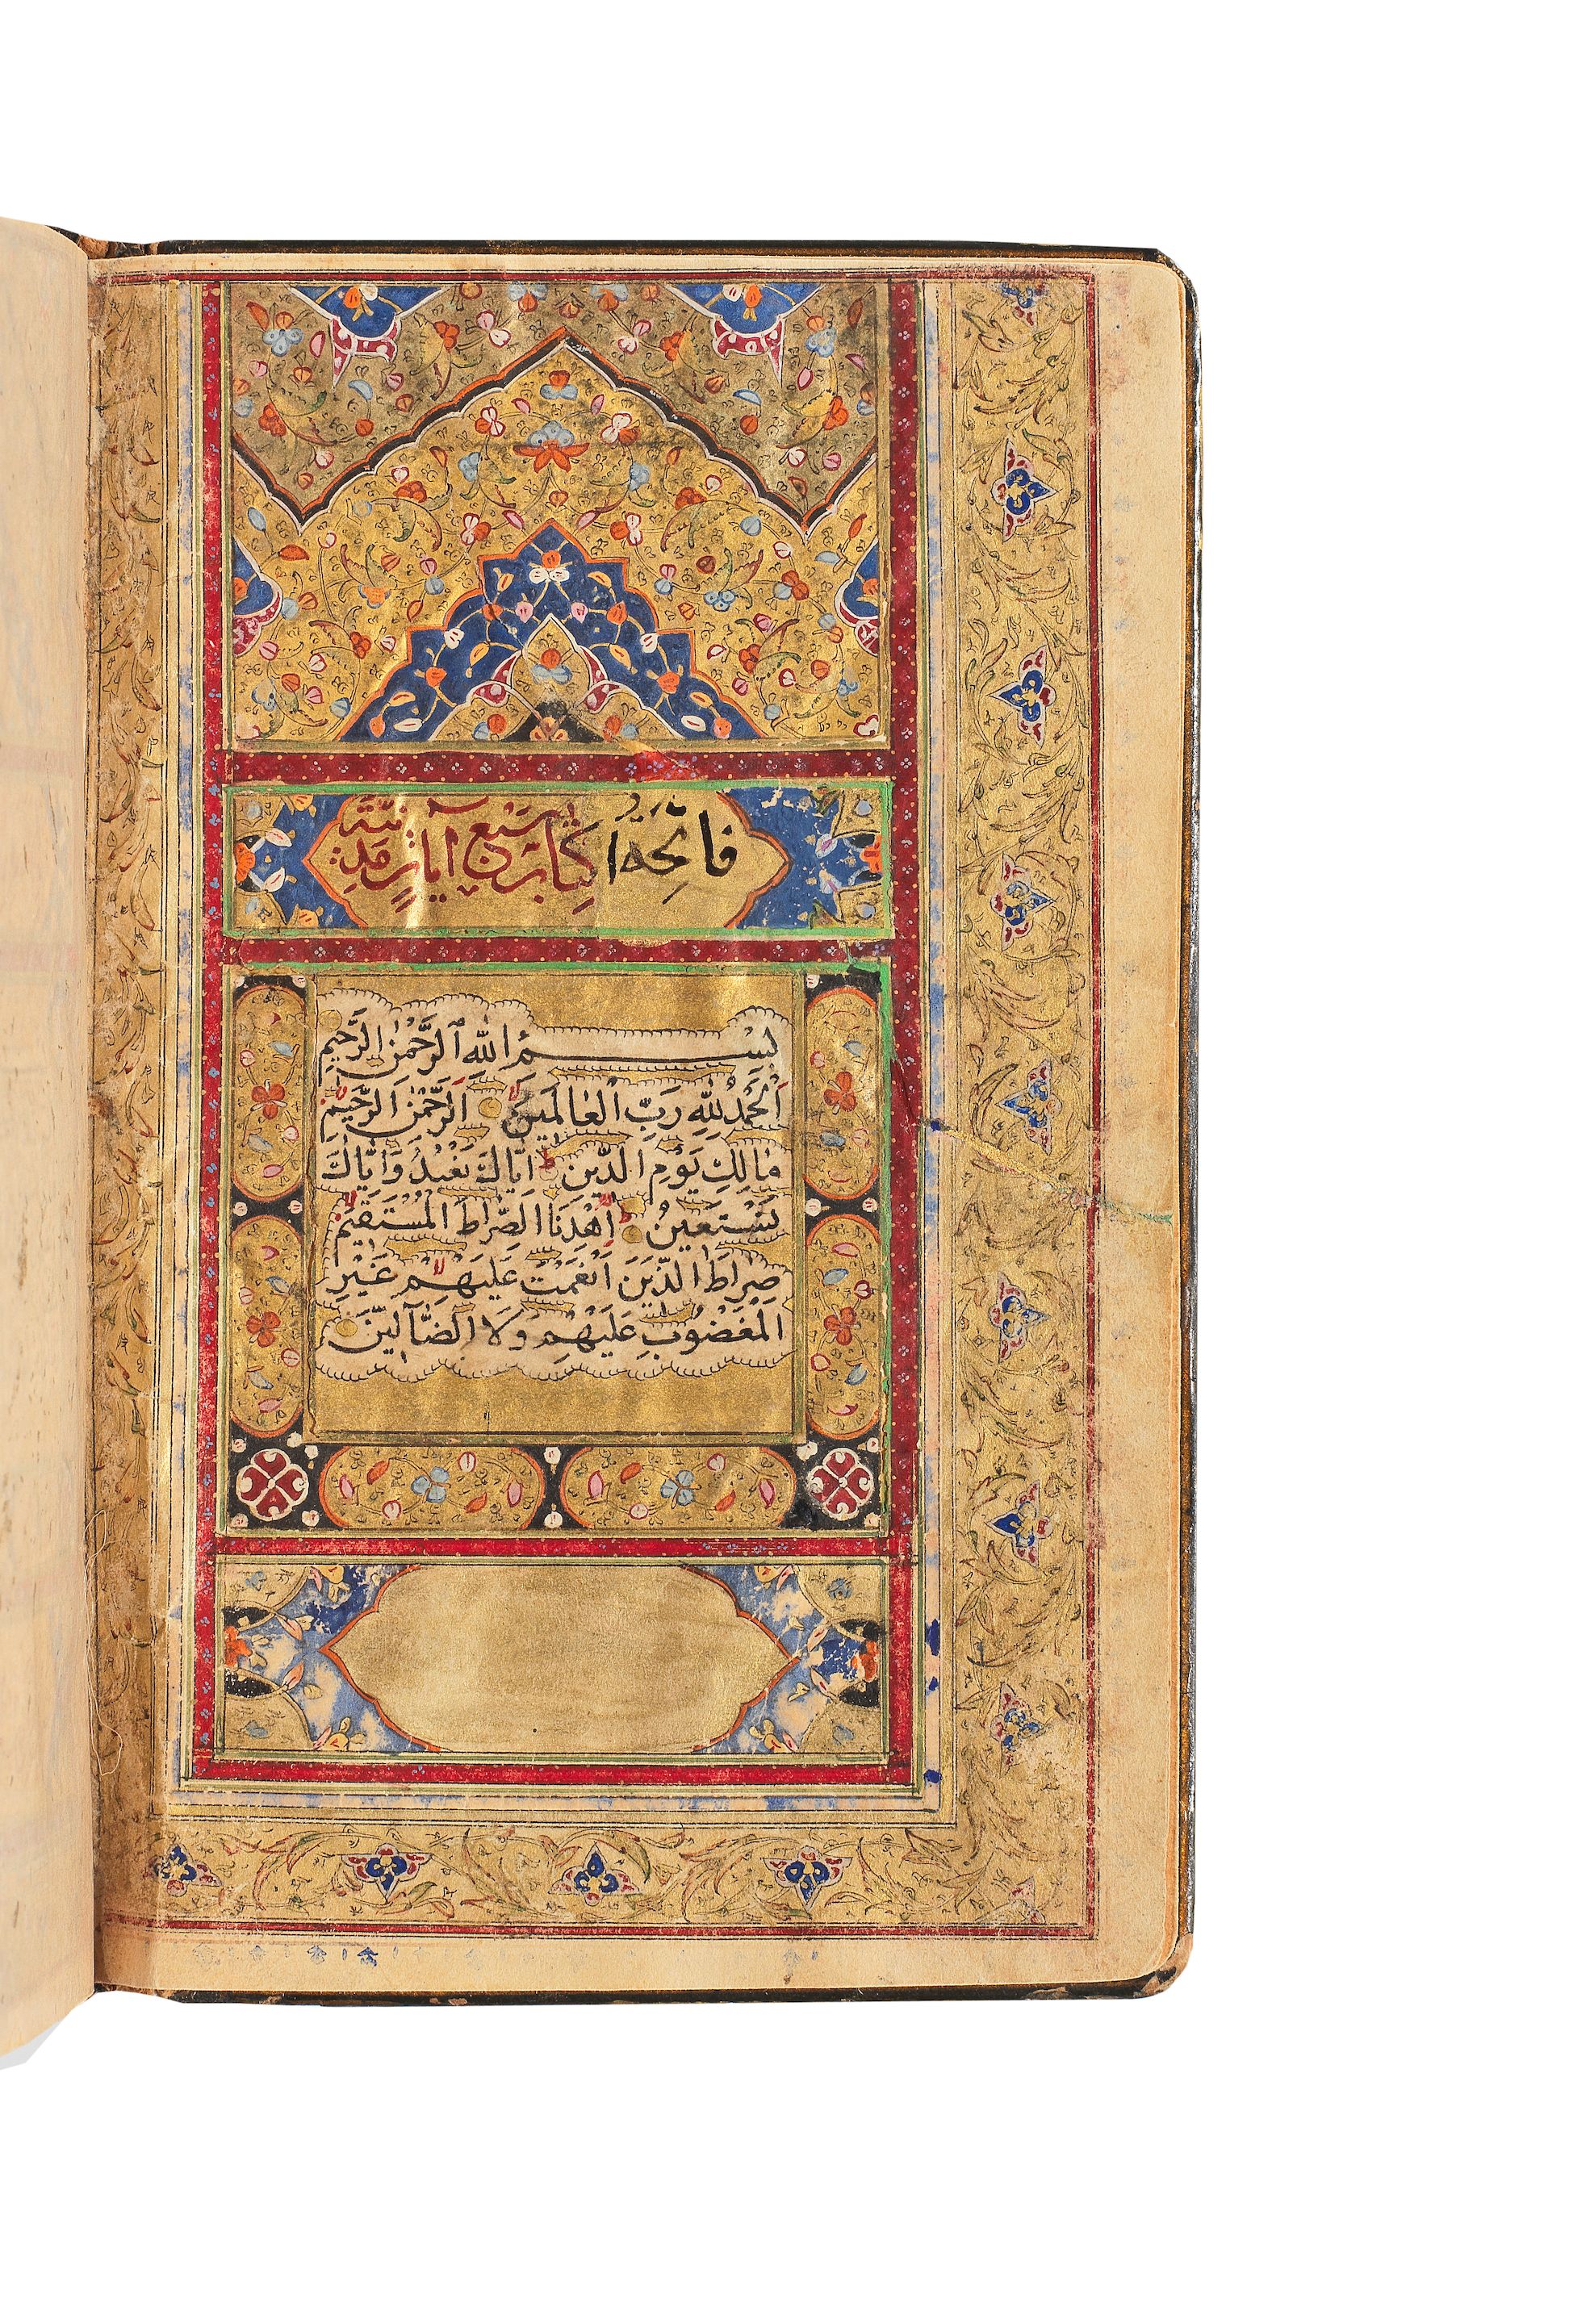 فاتحة الكتاب سبع آيات مدنية
بِسْمِ اللهِ الرَّحْمٰنِ الرَّحِيمِ
اَلْحَمْدُ لِلّٰهِ رَبِّ الْعٰالَمِينَ اَلرَّحْمٰنِ الرَّحِيمِ
مٰالِكِ يَوْمِ الدِّينِ اِيّٰاكَ نَعْبُدُ وَاِيّٰاكَ
نَسْتَعِينُ اِهْدِنَا الصِّرٰاطَ الْمُسْتَقِيمَ
صِرٰاطَ الَّذِينَ اَنْعَمْتَ عَلَيْهِمْ غَيْرِ
الْمَغْضُوبِ عَلَيْهِمْ وَلَا الضَّآلِّينَ